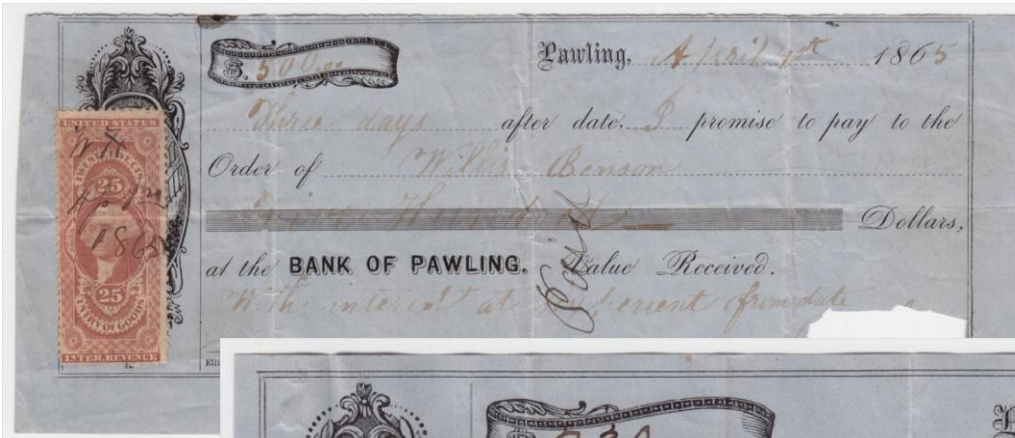 $. 500.00
Pawling, April 1st 1865
Three days after date. I promise to pay to the
Order of Willis Benson
Five Hundred Dollars,
at the BANK OF PAWLING. Value Received.
With interest at from date
Paid
UNITED STATES
25 25
ENTRY OF GOODS
INTER. REVENUE
1865